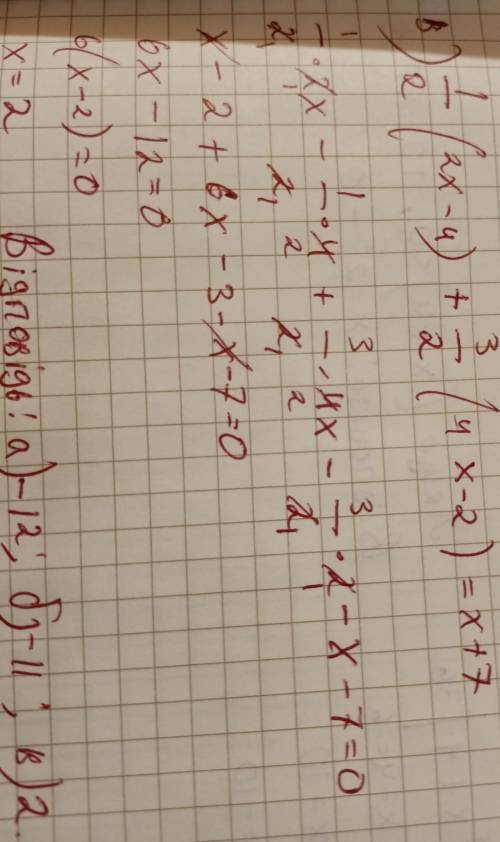 в) 1/2 (2x-4) + 3/2 (4x-2) = x+7
1/2 · 2x - 1/2 · 4 + 3/2 · 4x - 3/2 · 2 - x - 7 = 0
x - 2 + 6x - 3 - x - 7 = 0
6x - 12 = 0
6(x-2) = 0
x = 2
Відповідь: а) -12; б) -11; в) 2.